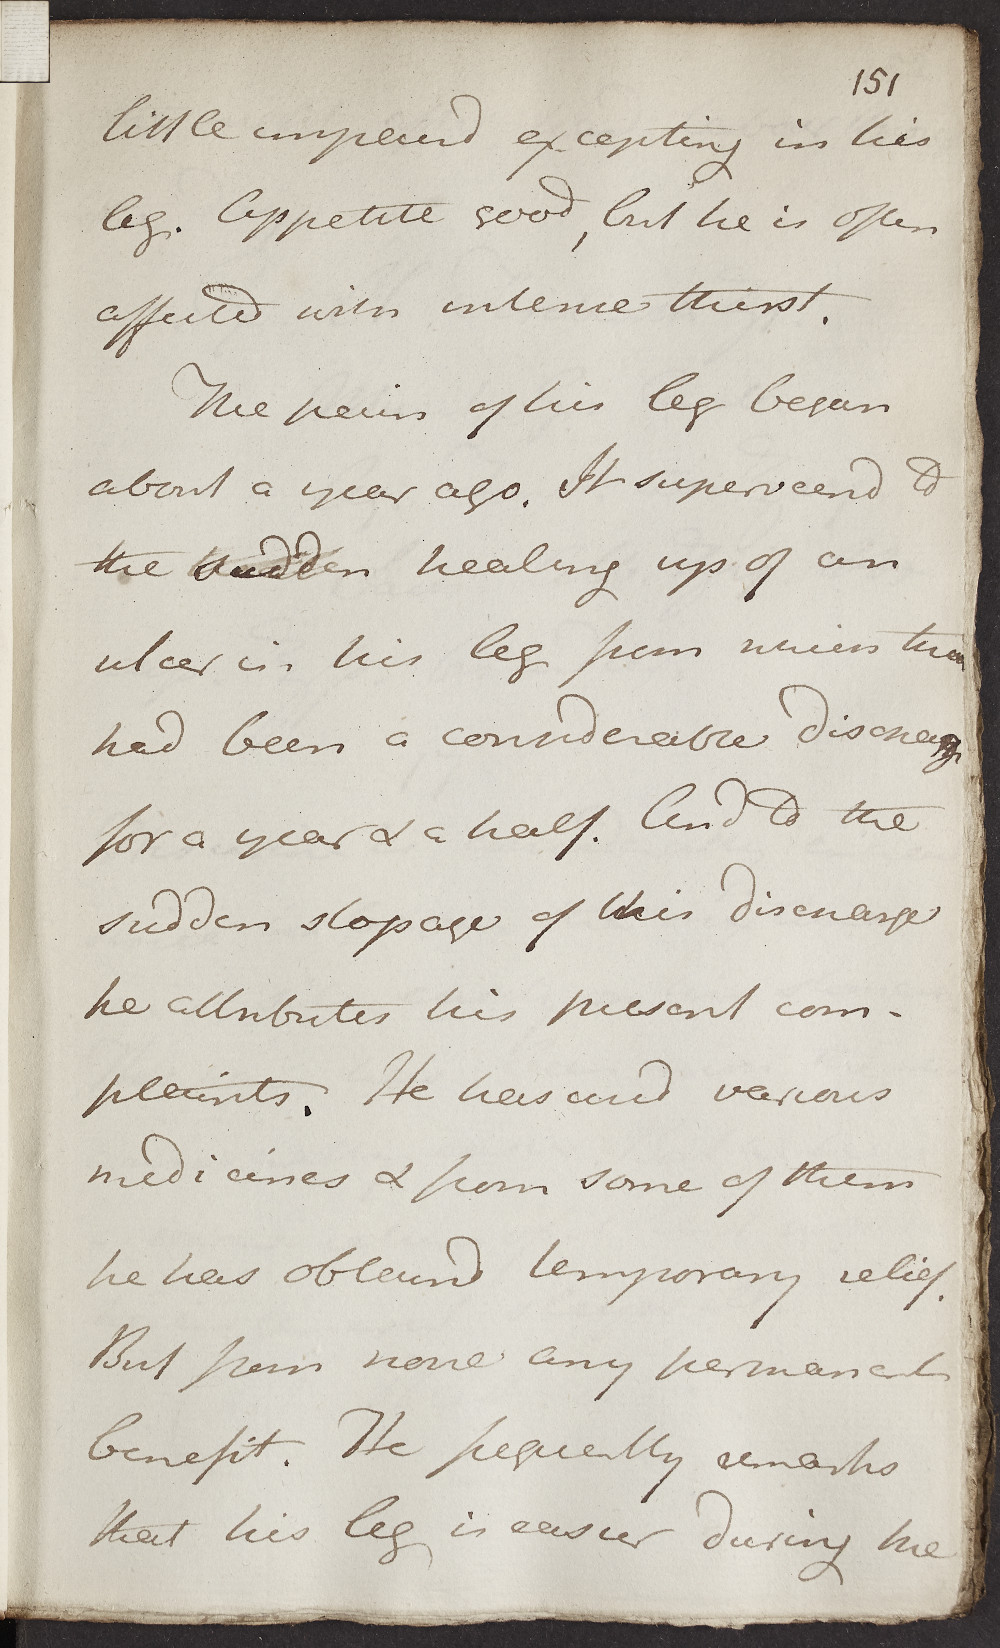 151
little impair'd excepting in his
leg. Appetite good, but he is often
affected with intense thirst.
The pain of his leg began
about a year ago. It superveen'd to
the sudden healing up of an
ulcer in his leg from which there
had been a considerable discharge
for a year & a half. And to the
sudden stopage of this discharge
he attributes his present com-
plaints. He has used various
medicines & from some of them
he has obtain'd temporary relief.
But from none any permanent
benefit. He frequently remarks
that his leg is easier during the